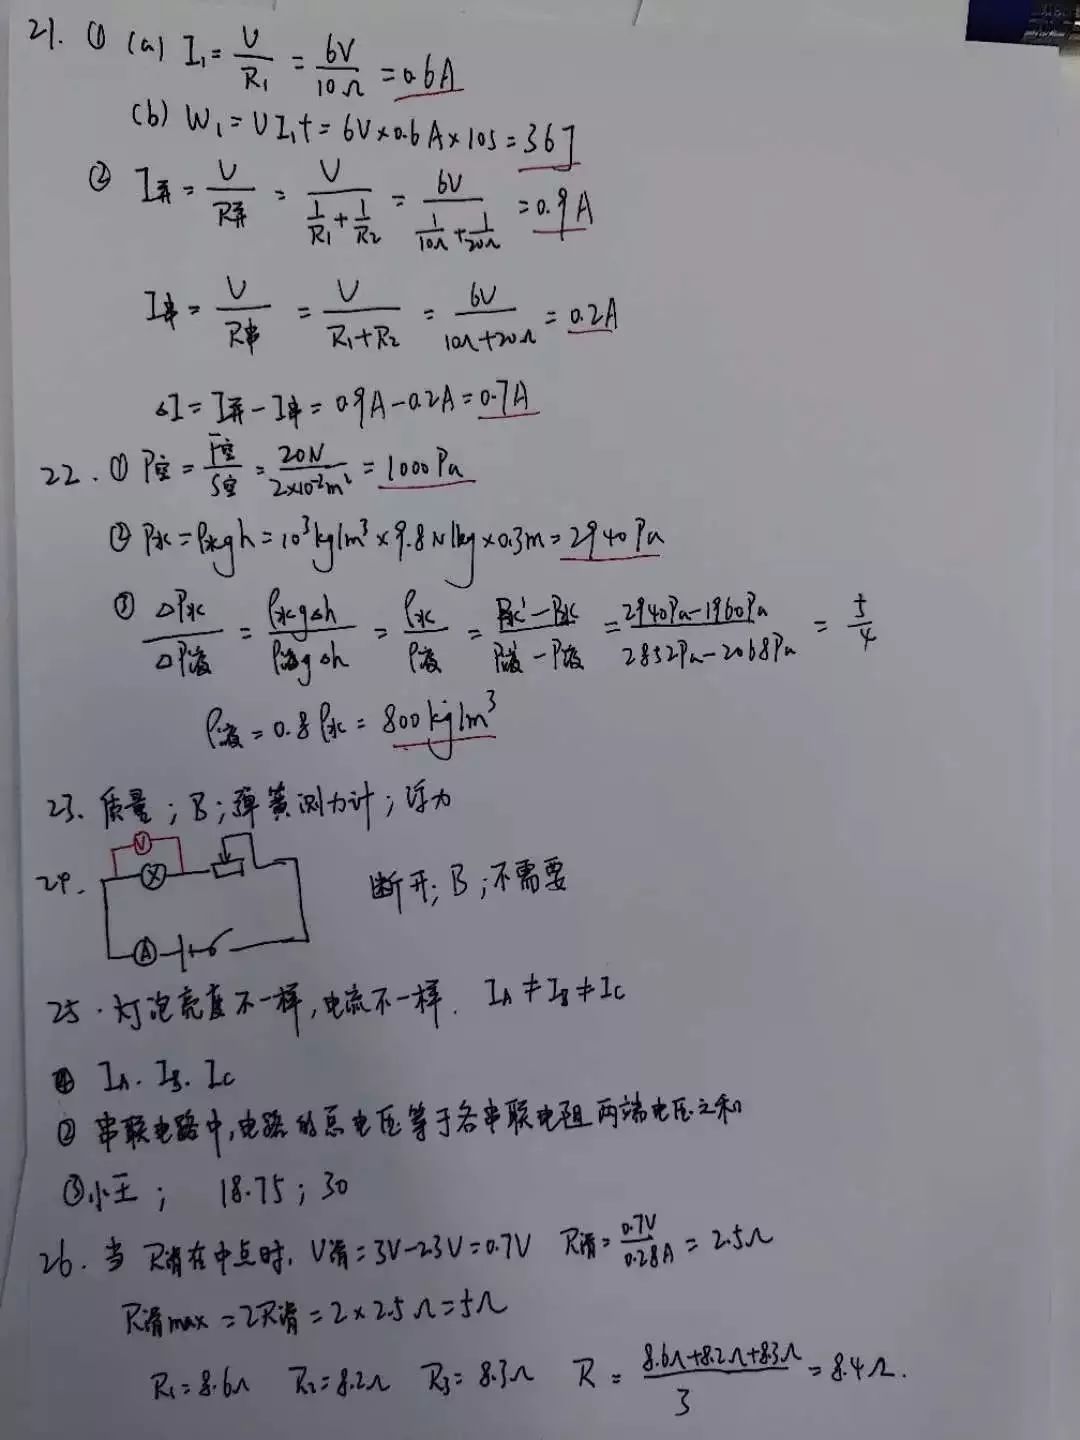 21. ① (a) I₁ = U/R₁ = 6V/10Ω = 0.6A
(b) W₁ = UI₁t = 6V×0.6A×10s = 36J
② I并 = U/R并 = U/(1/R₁ + 1/R₂) = 6V/(1/10Ω + 1/20Ω) = 0.9A
I串 = U/R串 = U/(R₁+R₂) = 6V/(10Ω+20Ω) = 0.2A
ΔI = I并 - I串 = 0.9A - 0.2A = 0.7A
22. ① P空 = F空/S空 = 20N/2×10⁻²m² = 1000Pa
② P水 = ρ水gh = 10³kg/m³ × 9.8N/kg × 0.3m = 2940Pa
③ ΔP水/ΔP液 = ρ水gΔh/ρ液gΔh = ρ水/ρ液 = (P水' - P水)/(P液' - P液) = (2940Pa - 1960Pa)/(2852Pa - 2068Pa) = 5/4
ρ液 = 0.8ρ水 = 800kg/m³
23. 质量；B；弹簧测力计；浮力
V
24. X 断开；B；不需要
A
25. 灯泡亮度不一样，电流不一样. IA ≠ IB ≠ IC
① IA. IB. IC
② 串联电路中，电路的总电压等于各串联电阻两端电压之和
③ 小王； 18.75；30
26. 当 R滑在中点时, U滑 = 3V - 2.3V = 0.7V R滑 = 0.7V/0.28A = 2.5Ω
R滑max = 2R滑 = 2 × 2.5Ω = 5Ω
R₁ = 8.6Ω R₂ = 8.2Ω R₃ = 8.3Ω R = (8.6Ω+8.2Ω+8.3Ω)/3 = 8.4Ω.